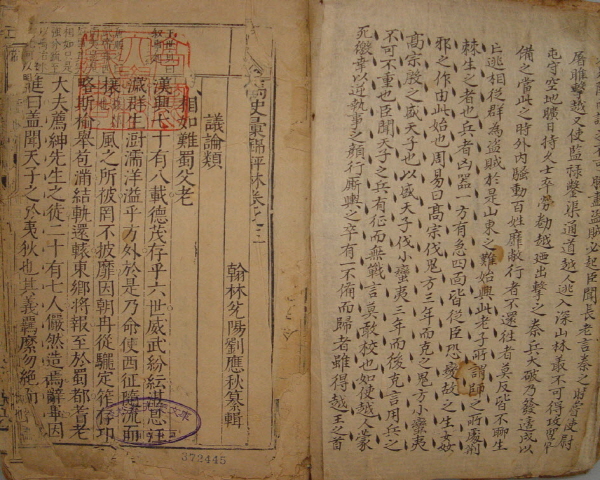 盡盜賊必起臣聞長老言秦之時嘗使尉
屠睢擊越又使監祿鑿渠通道越人逃入深山林叢不可得攻留軍
屯守空地曠日持久士卒勞勌越迺出擊之秦兵大破乃發適戍以
備之當此之時外內騷動百姓靡敝行者不還往者莫反皆不聊生
亡逃相從群為盜賊於是山東之難始興此老子所謂師之所處荊
棘生之者也兵者凶器一方有急四面皆從臣恐變故之生姦
邪之作由此始也周易曰高宗伐鬼方三年而克之鬼方小蠻夷
高宗殷之盛天子也以盛天子伐小蠻夷三年而後克言用兵之
不可不重也臣聞天子之兵有征而無戰言莫敢校也如使越人蒙
死徼幸以逆執事之顏行廝輿之卒有一不備而歸者雖得越王之首
史彙編評林卷之三
翰林 陽劉應秋纂輯
議論類
相如難蜀父老
漢興七十有八載德茂存乎六世威武紛紜湛恩汪
濊群生澍濡洋溢乎方外於是乃命使西征隨流而
攘風之所被罔不披靡因朝冉從駹定筰存邛
略斯榆舉苞 結軌還轅東鄉將報至於蜀都耆老
大夫薦紳先生之徒二十有七人儼然造焉辭畢因
進曰蓋聞天子之於夷狄也其義羈縻勿絕而
372445